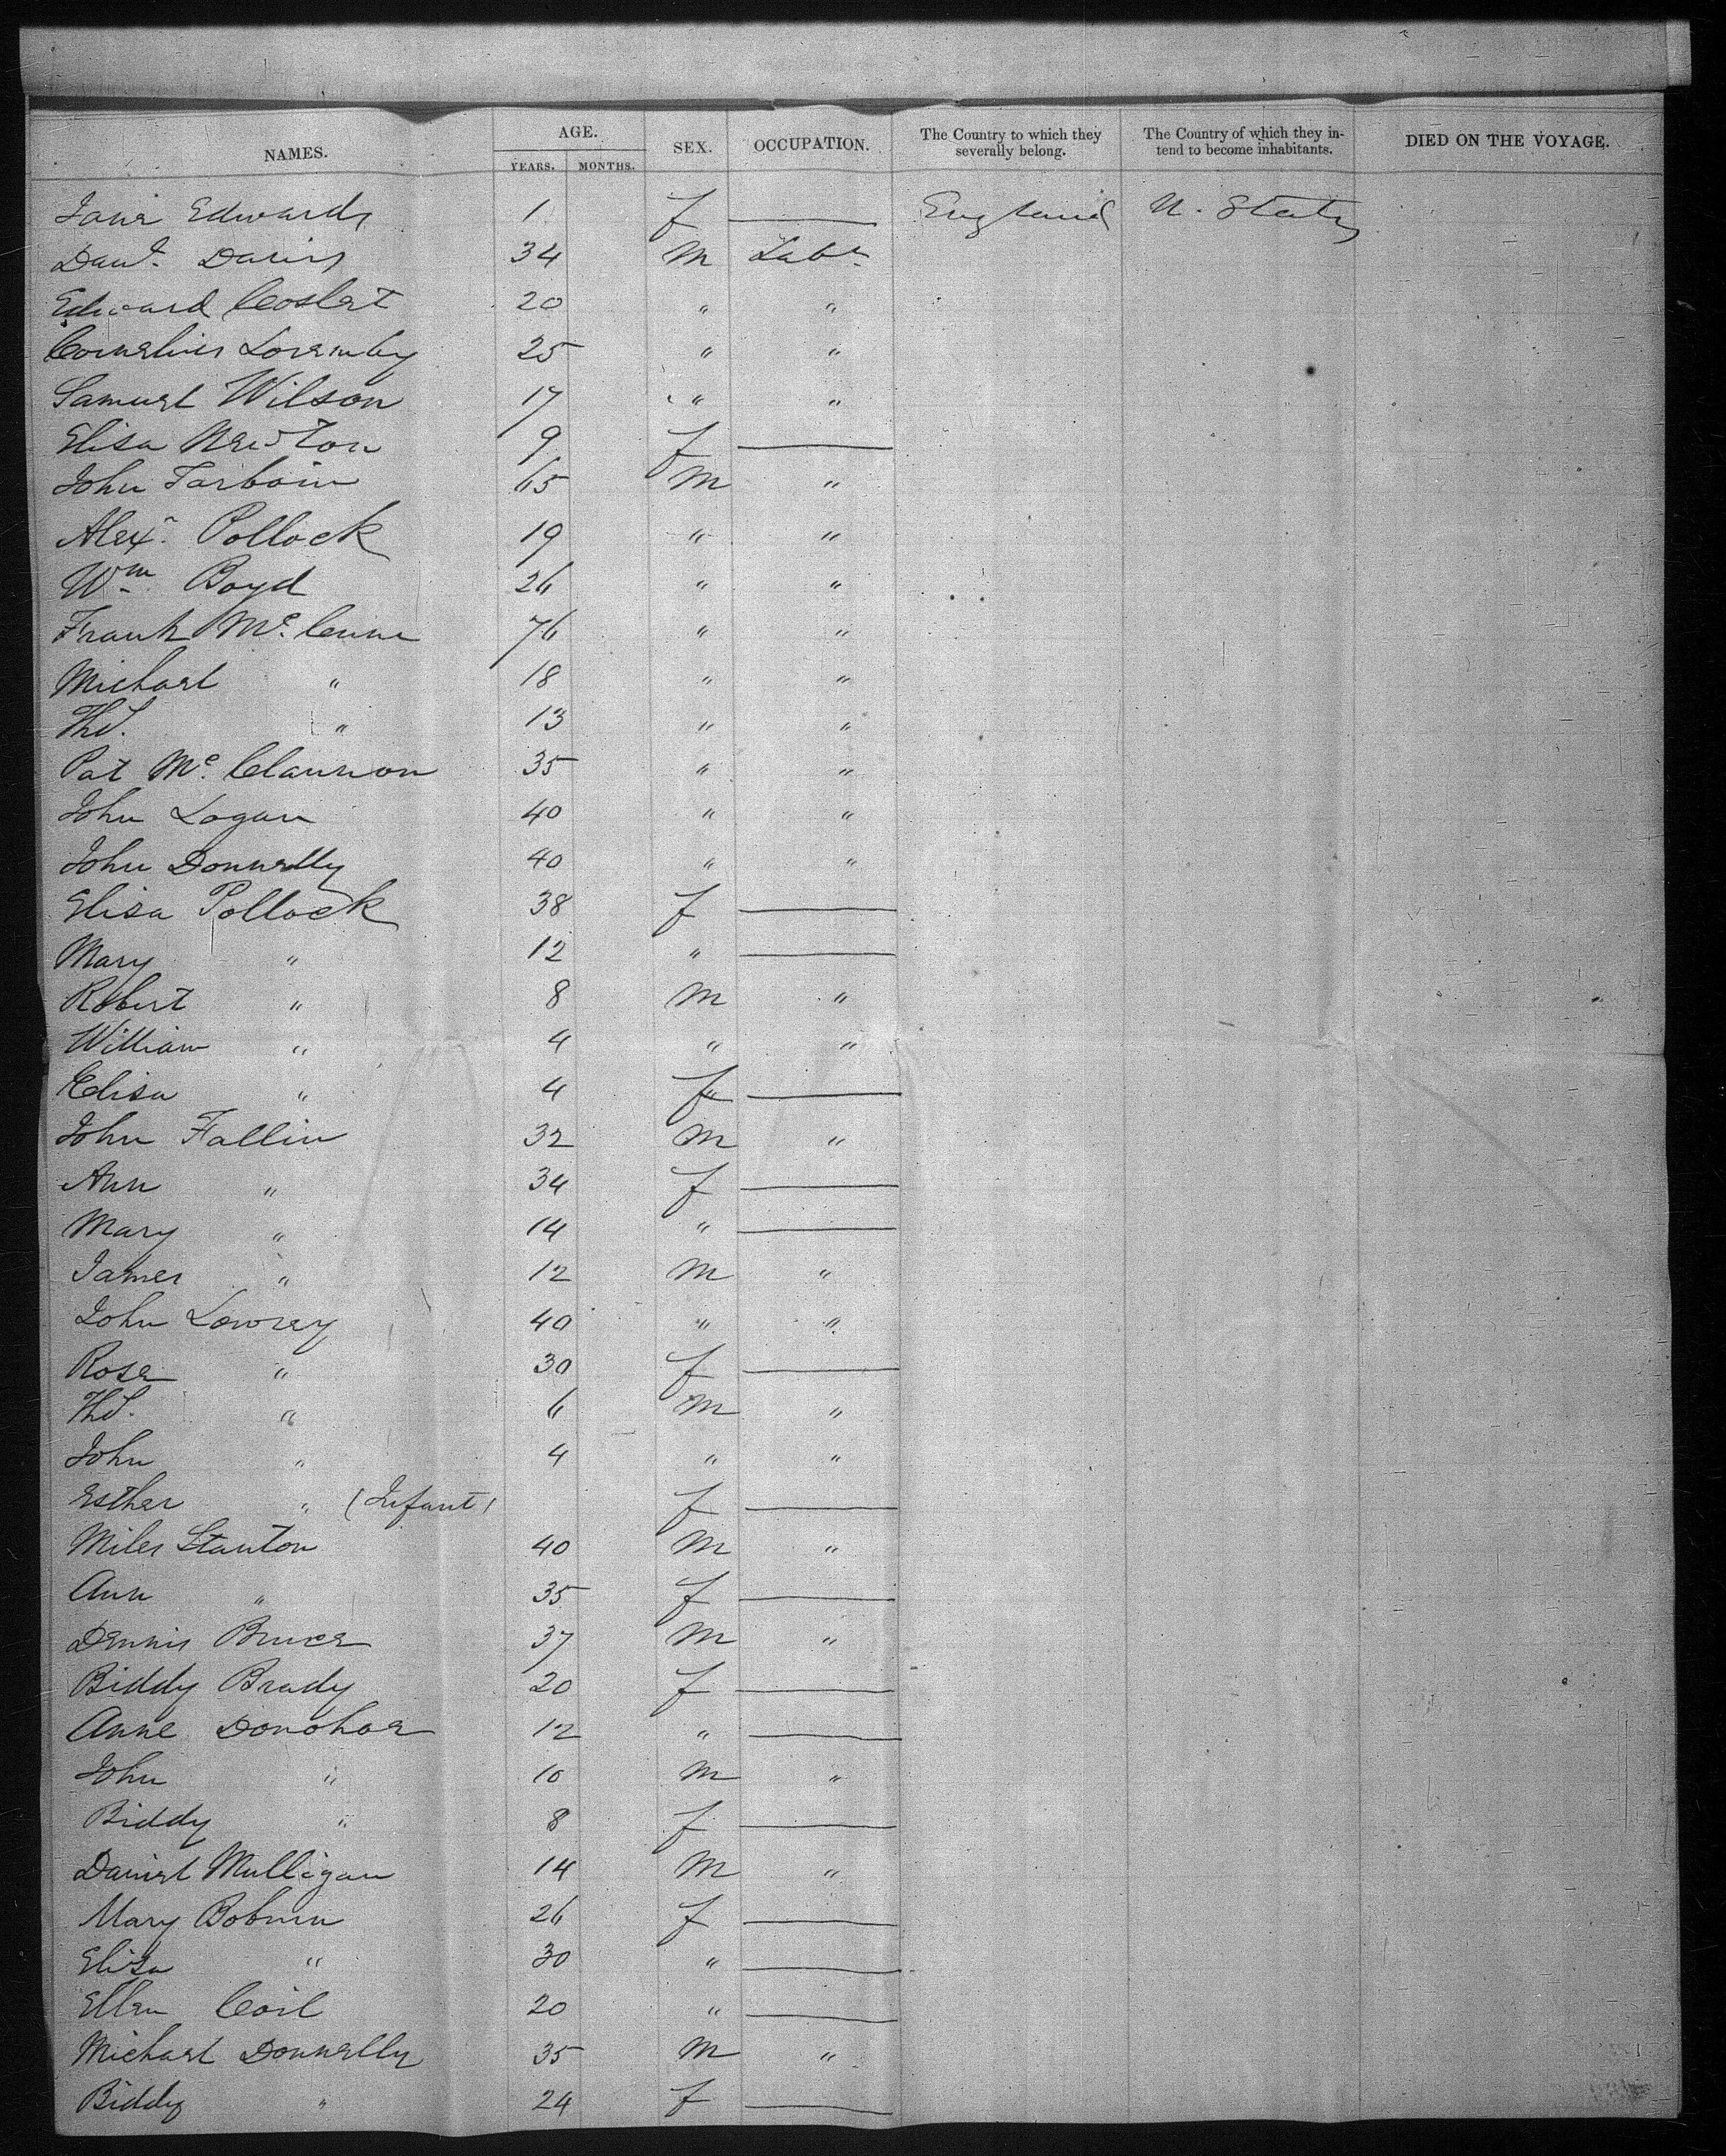 NAMES. AGE. SEX. OCCUPATION. The Country to which they severally belong. The Country of which they intend to become inhabitants. DIED ON THE VOYAGE.
YEARS. MONTHS.
Jane Edwards 1 f —— England U. States
Danl. Davis 34 M Labr
Edward Coslet 20 " "
Cornelius 25 " "
Samuel Wilson 17 " "
Elisa Newton 9 f ——
John 65 M "
Alexr. Pollock 19 " "
Wm Boyd 26 " "
Frank Mc. Cune 76 " "
Michael " 18 " "
Ths. " 13 " "
Pat Mc. Clannon 35 " "
John Logan 40 " "
John Donnelly 40 " "
Elisa Pollock 38 f ——
Mary " 12 " ——
Robert " 8 M "
William " 4 " "
Elisa " 4 f ——
John Fallin 32 M "
Ann " 34 f ——
Mary " 14 " ——
James " 12 M "
John Lowrey 40 " "
Rose " 30 f ——
Ths. " 6 M "
John " 4 " "
Esther " (Infant) f ——
Miles Stanton 40 M "
Ann " 35 f ——
Dennis Bruce 37 M "
Biddy Brady 20 f ——
Anne Donohoe 12 " ——
John " 10 M "
Biddy " 8 f ——
Daniel Mulligan 14 M "
Mary 26 f ——
Eliza " 30 " ——
Ellen Coil 20 " ——
Michael Donnelly 35 M "
Biddy " 24 f ——